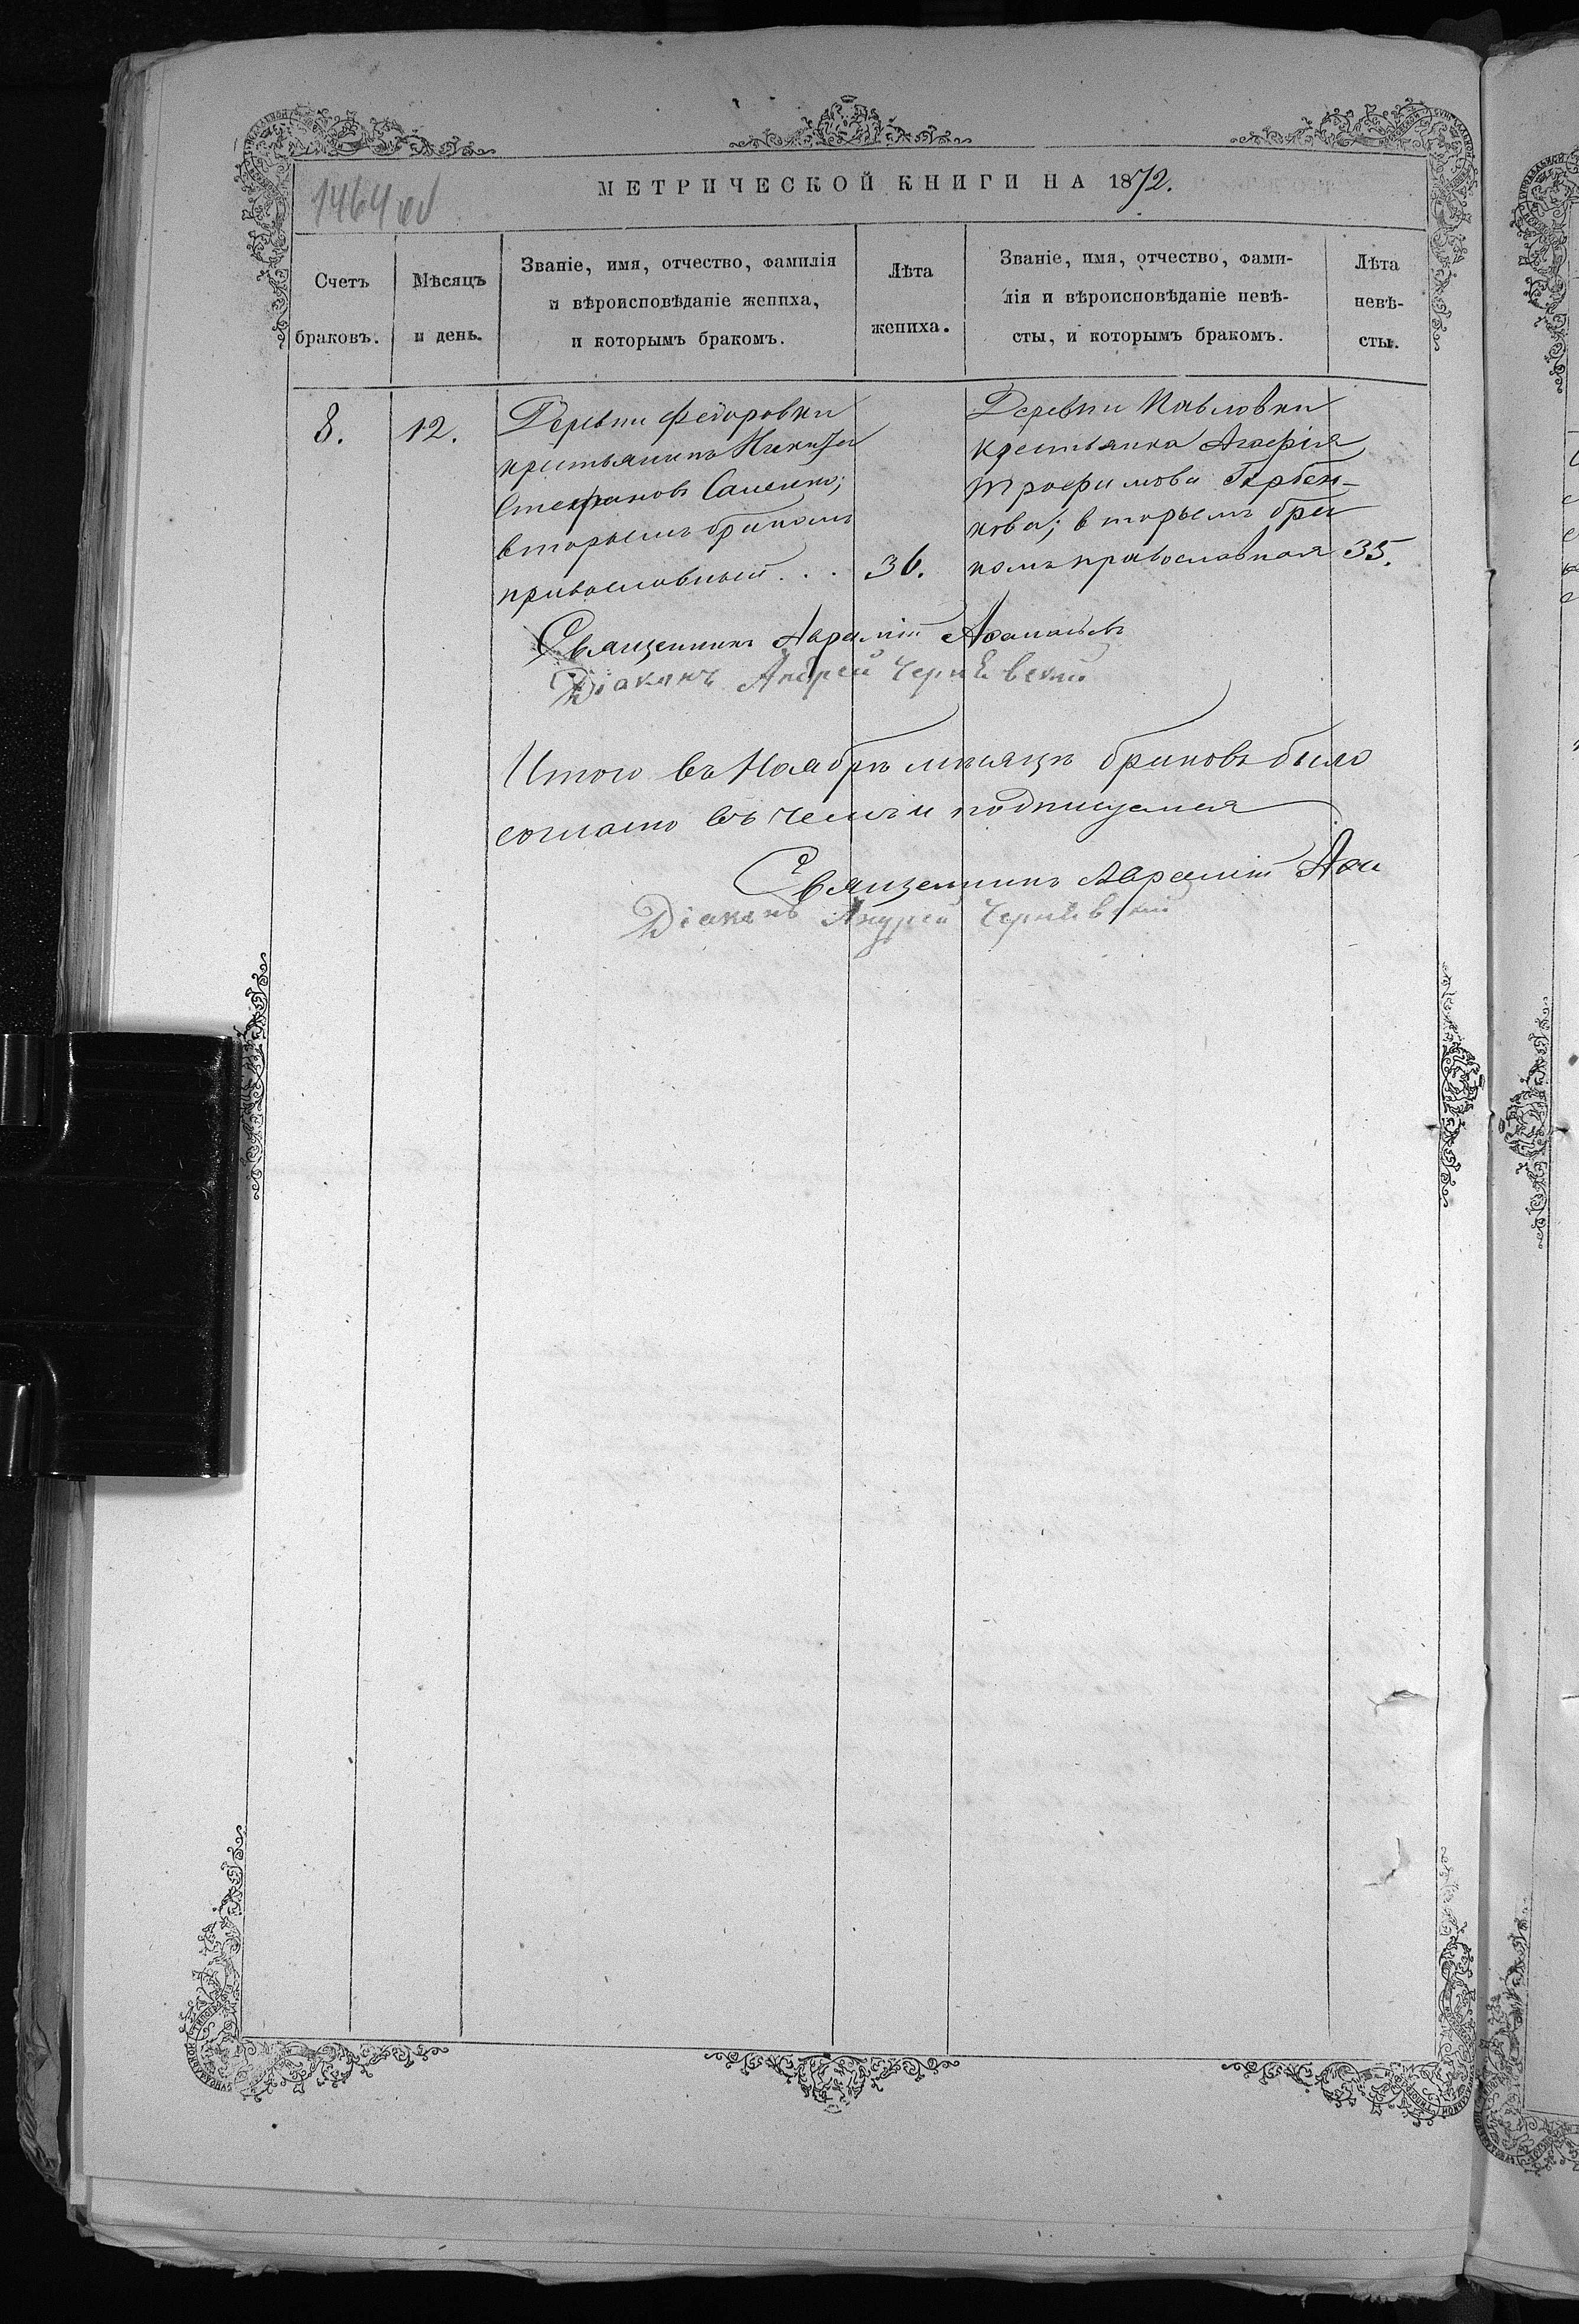 МЕТРИЧЕСКОЙ КНИГИ НА 1872.
1464 об
Счетъ браковъ.
Мѣсяцъ и день.
Званіе, имя, отчество, фамилія
и вѣроисповѣданіе жениха,
и которымъ бракомъ.
Лѣта
жениха.
Званіе, имя, отчество, фами-
лія и вѣроисповѣданіе невѣ-
сты, и которымъ бракомъ.
Лѣта
невѣ-
сты.
8.
12.
Деревни Федоровки
крестьянинъ Никита
Стефановъ Саненко;
вторымъ бракомъ
православный . . .
36.
Деревни Павловки
крестьянка Агафія
Трофимова Горбен-
кова; вторымъ бра
комъ православная
35.
Священникъ Авраамій Афанасьевъ
Діаконъ Андрей Чернѣвскій
Итого въ Ноябрѣ мѣсяцѣ браковъ было
согласно въ чемъ и подписуемся
Священникъ Авраамій Афа
Діаконъ Андрей Чернѣвскій